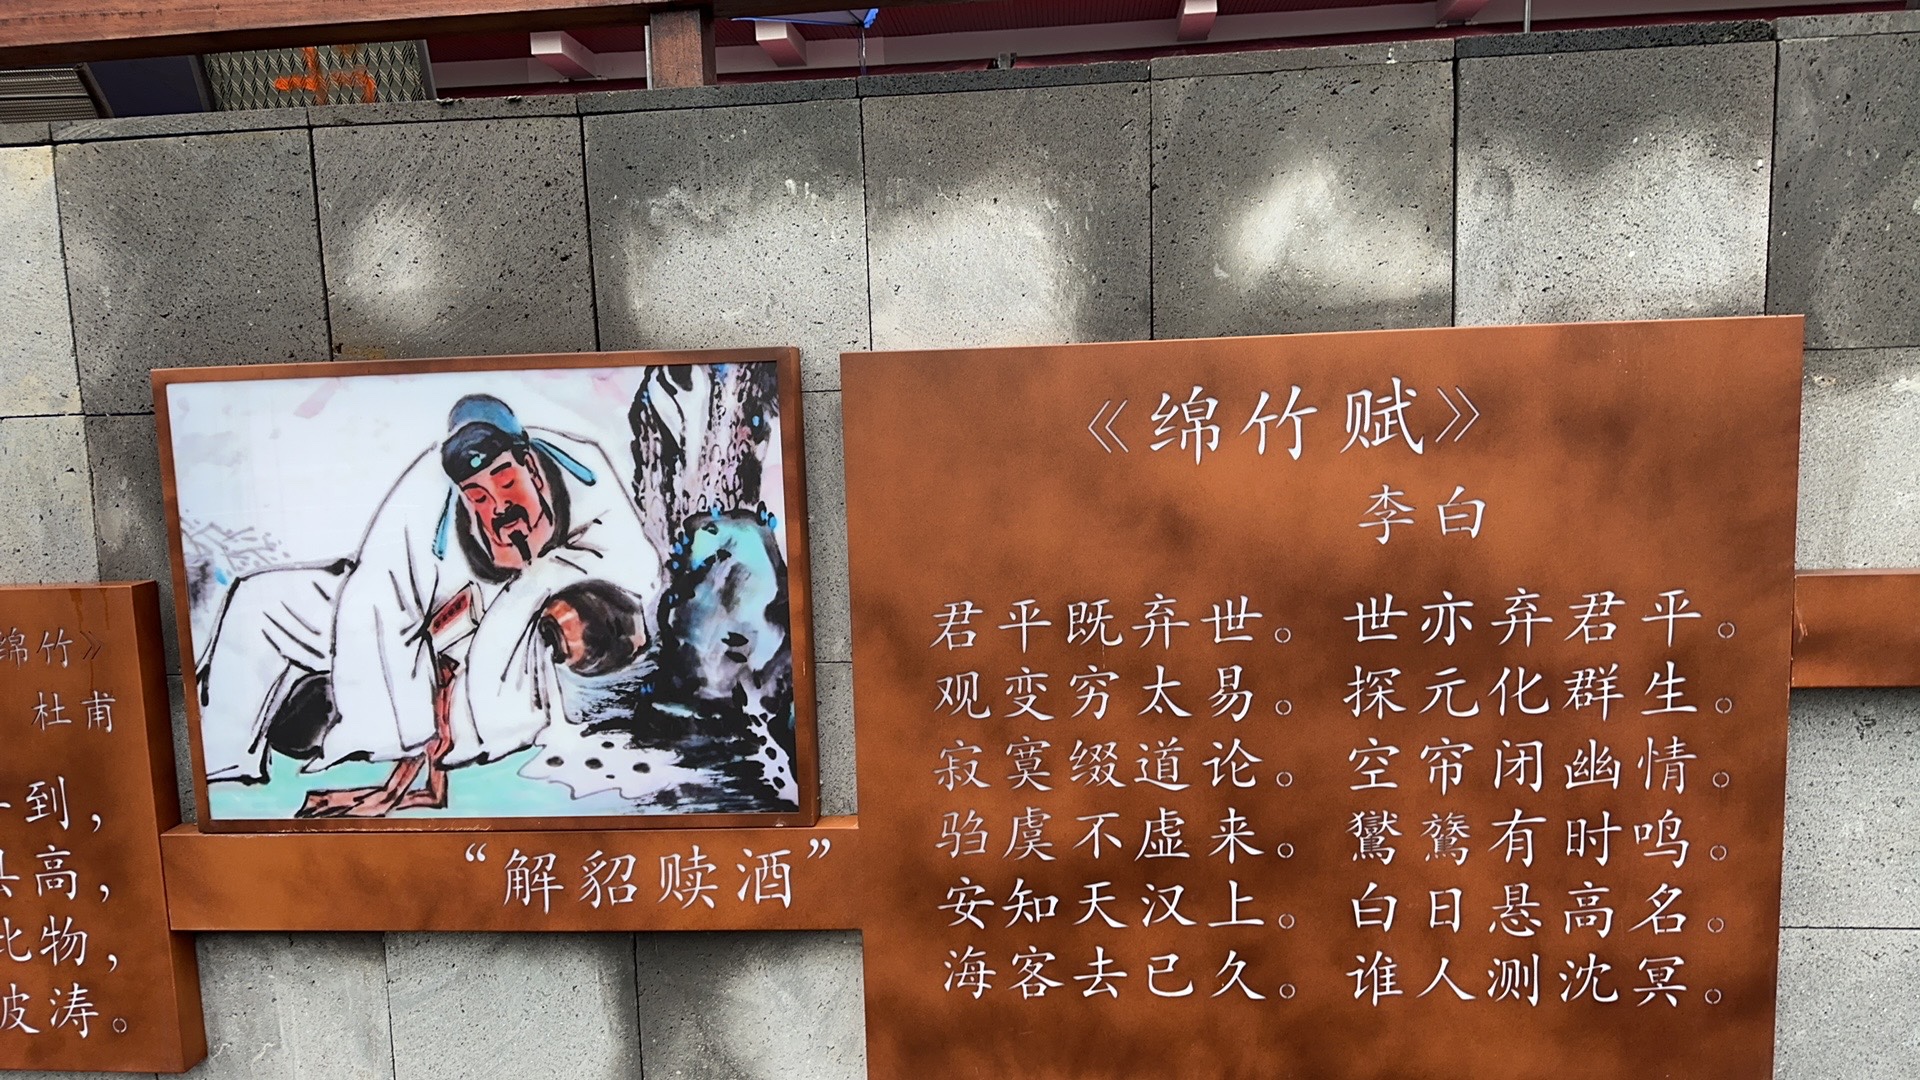 绵竹》
杜甫
到，
高，
此物，
波涛。
“解貂赎酒”
《绵竹赋》
李白
君平既弃世。 世亦弃君平。
观变穷太易。 探元化群生。
寂寞缀道论。 空帘闭幽情。
驺虞不虚来。 鸑鷟有时鸣。
安知天汉上。 白日悬高名。
海客去已久。 谁人测沈冥。